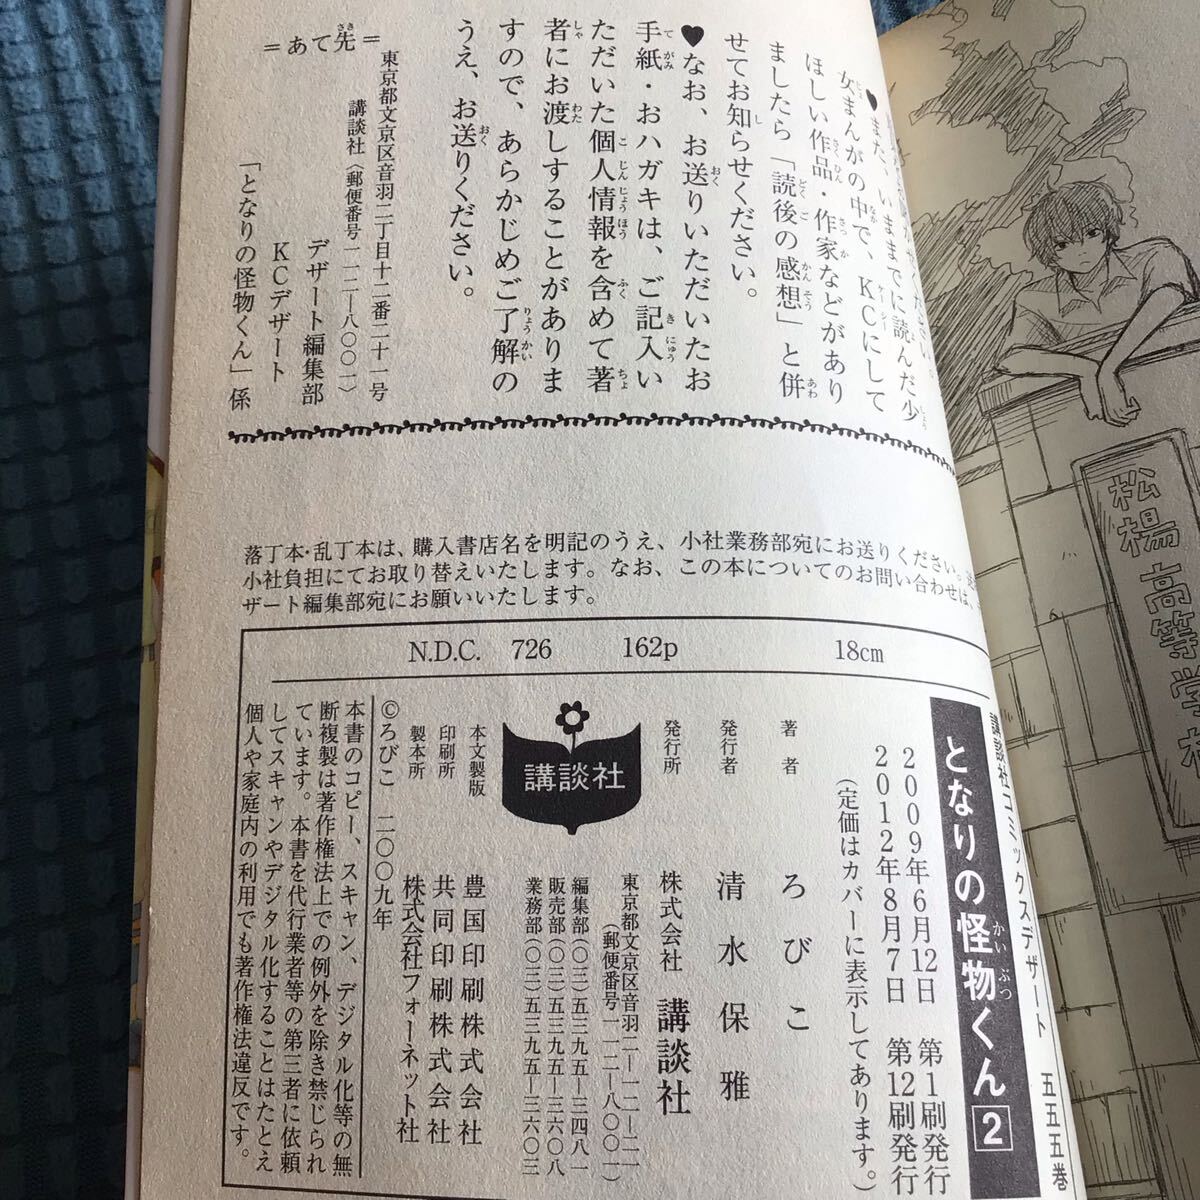 ♥また、いままでに読んだ少
女まんがの中で、KCにして
ほしい作品・作家などがあり
ましたら「読後の感想」と併
せてお知らせください。
♥なお、お送りいただいたお
手紙・おハガキは、ご記入い
ただいた個人情報を含めて著
者にお渡しすることがありま
すので、あらかじめご了解の
うえ、お送りください。
=あて先=
東京都文京区音羽二丁目十二番二十一号
講談社(郵便番号一一二-八〇〇一)
デザート編集部
KCデザート
「となりの怪物くん」係
落丁本・乱丁本は、購入書店名を明記のうえ、小社業務部宛にお送りください。
小社負担にてお取り替えいたします。なお、この本についてのお問い合わせは、
ザート編集部宛にお願いいたします。
N.D.C. 726 162p 18cm
講談社コミックスデザート 五五五巻
となりの怪物くん 2
2009年6月12日 第1刷発行
2012年8月7日 第12刷発行
(定価はカバーに表示してあります。)
著者 ろびこ
発行者 清水保雅
発行所 株式会社 講談社
東京都文京区音羽二-一二-二一
(郵便番号一一二-八〇〇一)
編集部(〇三)五三九五-三四八一
販売部(〇三)五三九五-三六〇八
業務部(〇三)五三九五-三六〇三
講談社
本文製版 豊国印刷株式会社
印刷所 共同印刷株式会社
製本所 株式会社フォーネット社
©ろびこ 二〇〇九年
本書のコピー、スキャン、デジタル化等の無
断複製は著作権法上での例外を除き禁じられ
ています。本書を代行業者等の第三者に依頼
してスキャンやデジタル化することはたとえ
個人や家庭内の利用でも著作権法違反です。
松楊高等学校